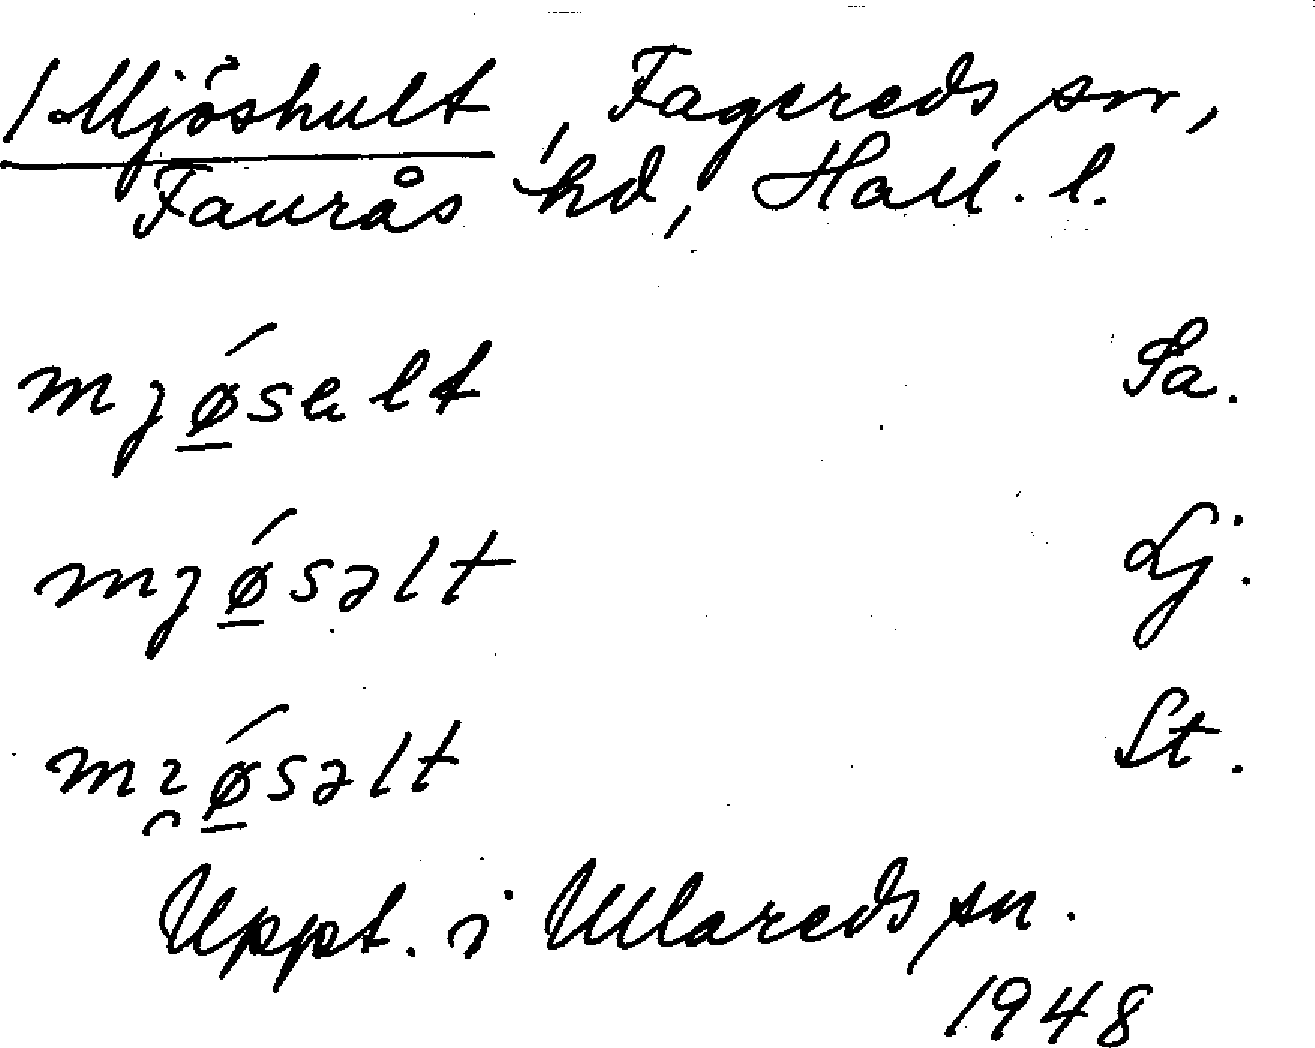 / Mjöshult, Fagereds sn,
Faurås hd, Hall. l.
mjǿ̲sալt Sa.
mjǿ̲səlt Lj.
mı̯ǿ̲səlt St.
Uppt. i Ullareds sn.
1948